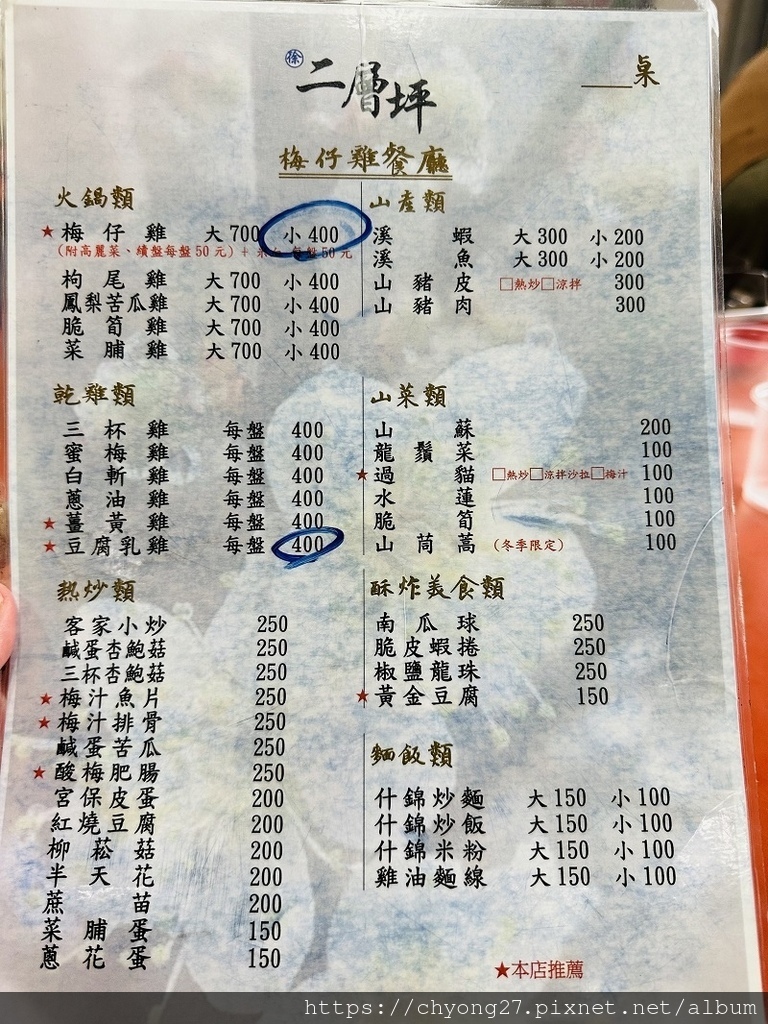 徐 二層坪
桌
梅仔雞餐廳
火鍋類
★ 梅仔雞 大700 小400
(附高麗菜、續盤每盤50元) + 每盤50元
枸尾雞 大700 小400
鳳梨苦瓜雞 大700 小400
脆筍雞 大700 小400
菜脯雞 大700 小400
山產類
溪蝦 大300 小200
溪魚 大300 小200
山豬皮 □熱炒□涼拌 300
山豬肉 300
乾雞類
三杯雞 每盤 400
蜜梅雞 每盤 400
白斬雞 每盤 400
蔥油雞 每盤 400
★ 薑黃雞 每盤 400
★ 豆腐乳雞 每盤 400
山菜類
山蘇 200
龍鬚菜 100
★ 過貓 □熱炒□涼拌沙拉□梅汁 100
水蓮 100
脆筍 100
山茼蒿 (冬季限定) 100
熱炒類
客家小炒 250
鹹蛋杏鮑菇 250
三杯杏鮑菇 250
★ 梅汁魚片 250
★ 梅汁排骨 250
鹹蛋苦瓜 250
★ 酸梅肥腸 250
宮保皮蛋 200
紅燒豆腐 200
柳菘菇 200
半天花 200
蔗苗 200
菜脯蛋 150
蔥花蛋 150
酥炸美食類
南瓜球 250
脆皮蝦捲 250
椒鹽龍珠 250
★ 黃金豆腐 150
麵飯類
什錦炒麵 大150 小100
什錦炒飯 大150 小100
什錦米粉 大150 小100
雞油麵線 大150 小100
★本店推薦
https://chyong27.pixnet.net/album